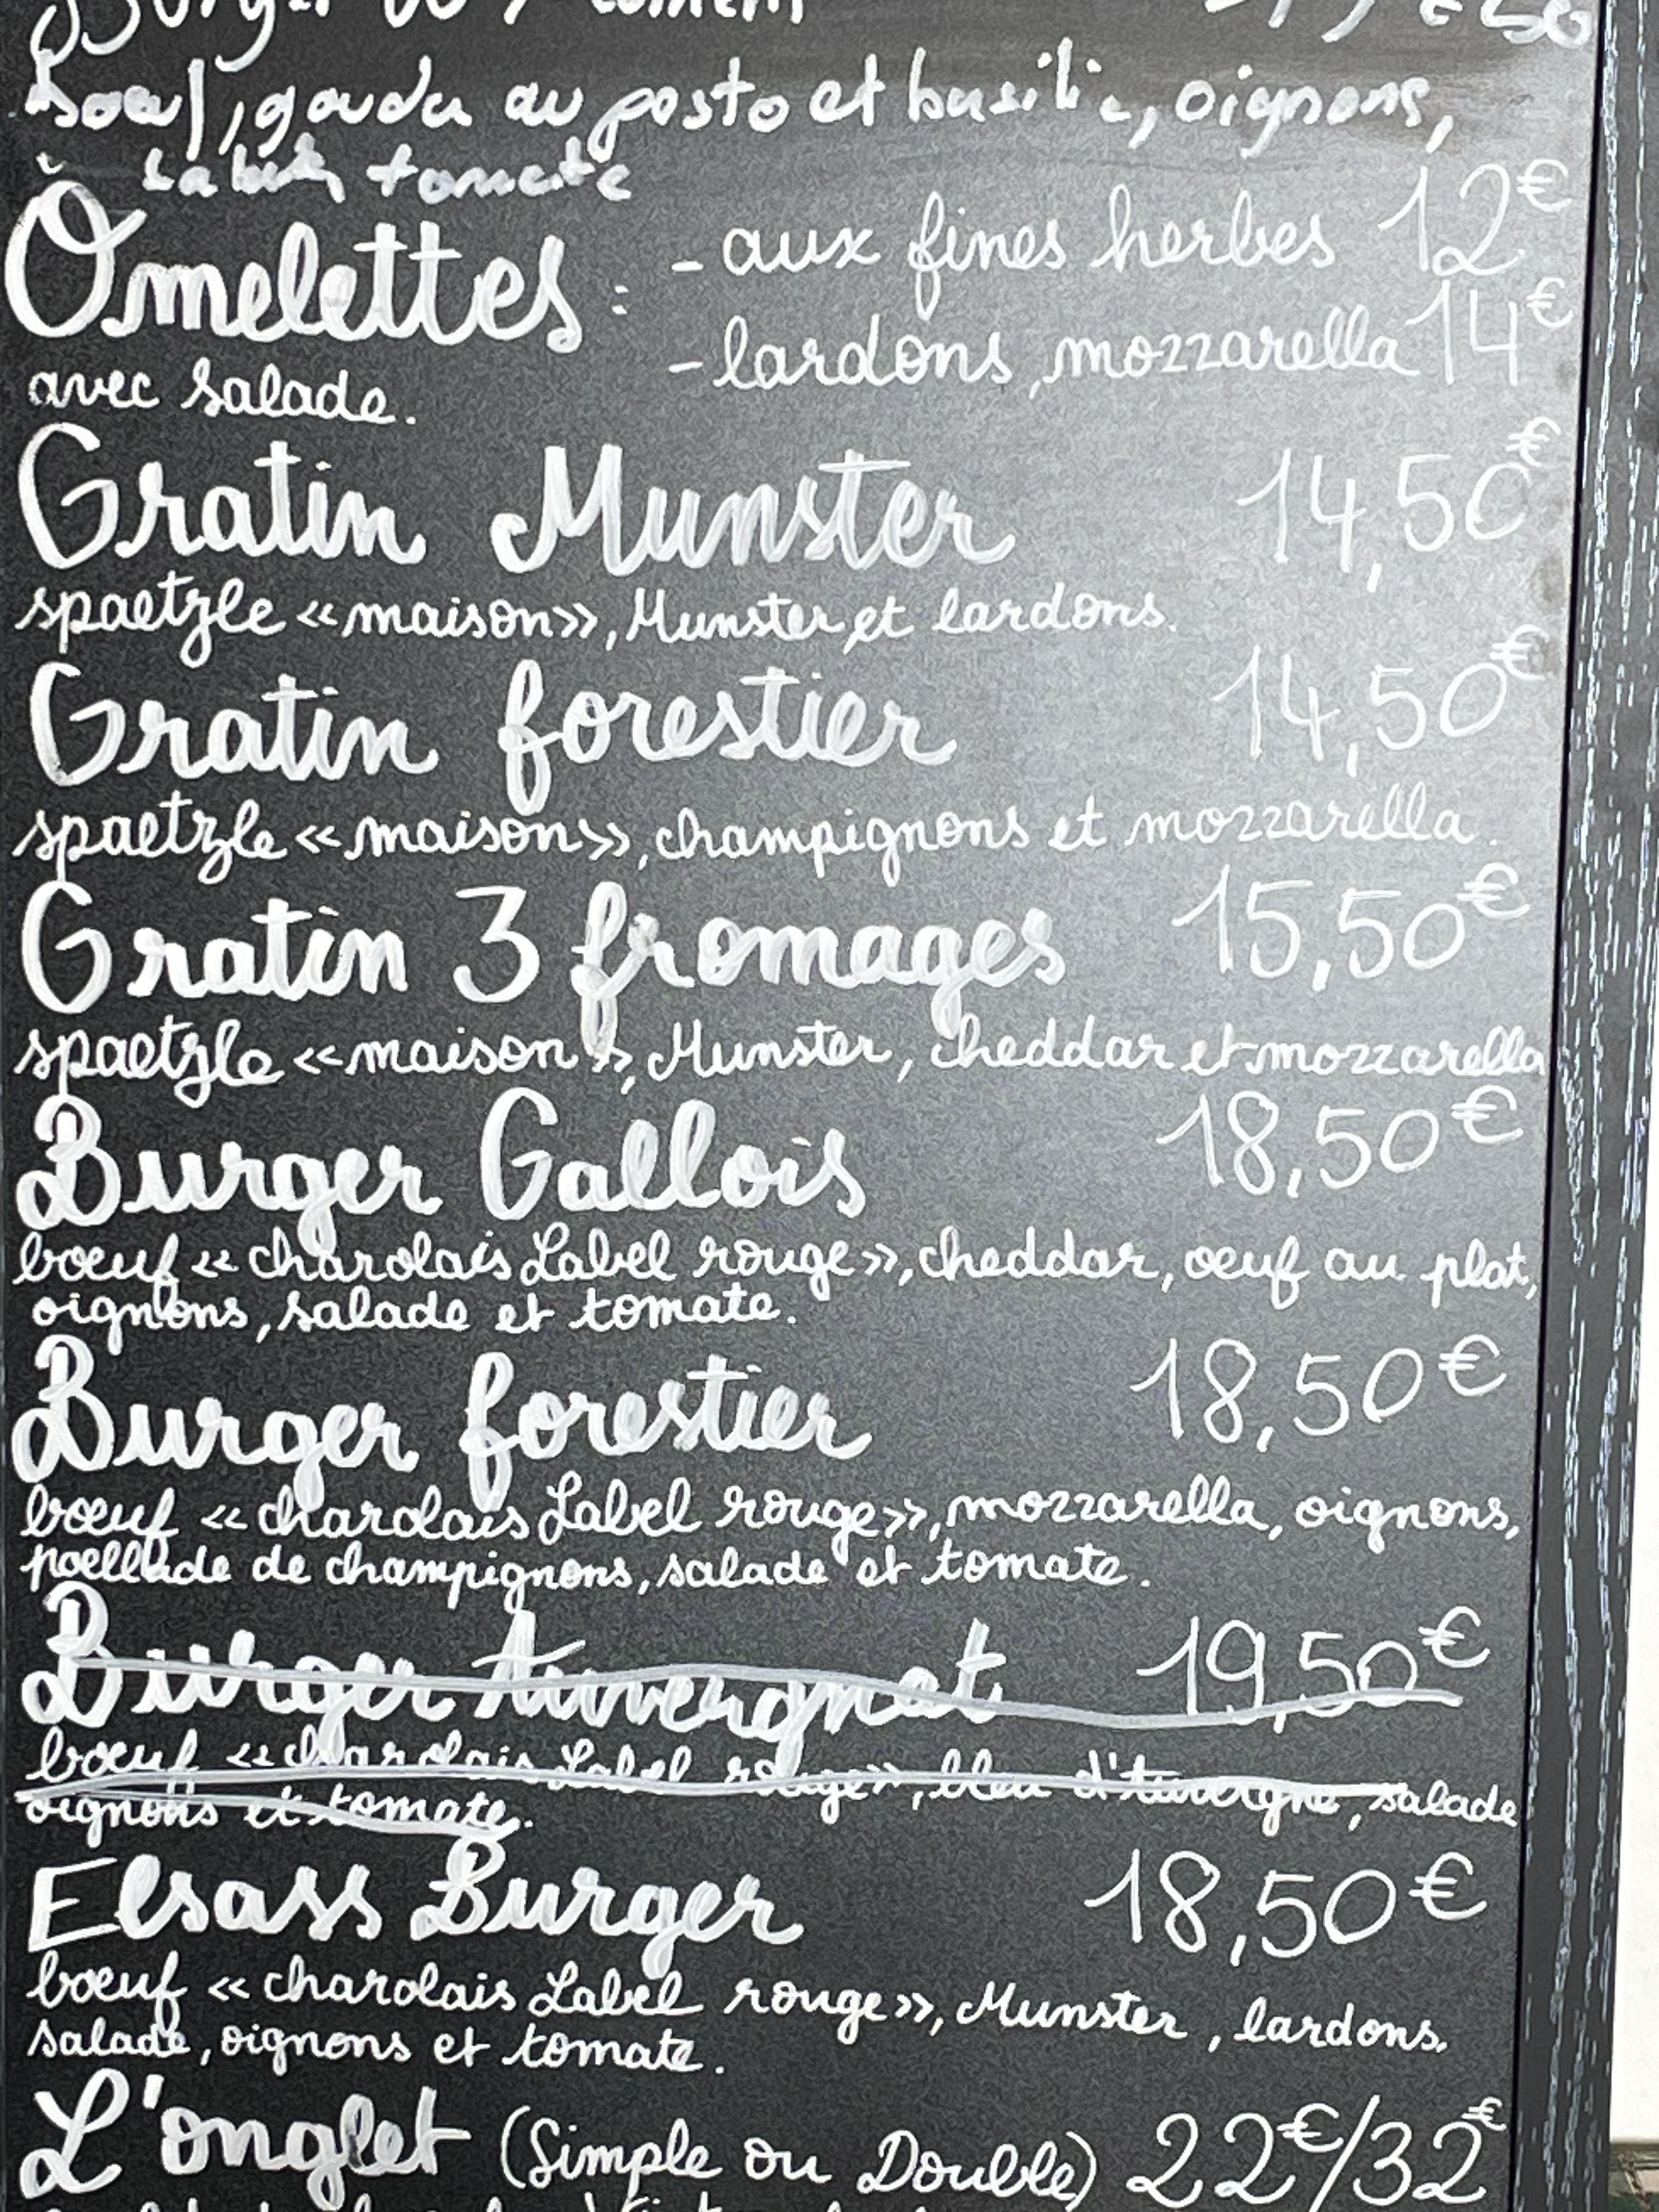 Burger du moment
boeuf, gouda au pesto et basilic, oignons,
salade, tomate
Omelettes : - aux fines herbes 12€
- lardons, mozzarella 14€
avec salade.
Gratin Munster 14,50€
spaetzle «maison», Munster et lardons.
Gratin forestier 14,50€
spaetzle «maison», champignons et mozzarella.
Gratin 3 fromages 15,50€
spaetzle «maison», Munster, cheddar et mozzarella
Burger Gallois 18,50€
boeuf «charolais Label rouge», cheddar, oeuf au plat,
oignons, salade et tomate.
Burger forestier 18,50€
boeuf «charolais Label rouge», mozzarella, oignons,
poellade de champignons, salade et tomate.
Burger Auvergnat 19,50€
boeuf «charolais Label rouge», bleu d'Auvergne, salade
oignons et tomate.
Elsass Burger 18,50€
boeuf «charolais Label rouge», Munster, lardons,
salade, oignons et tomate.
L'onglet (Simple ou Double) 22€/32€